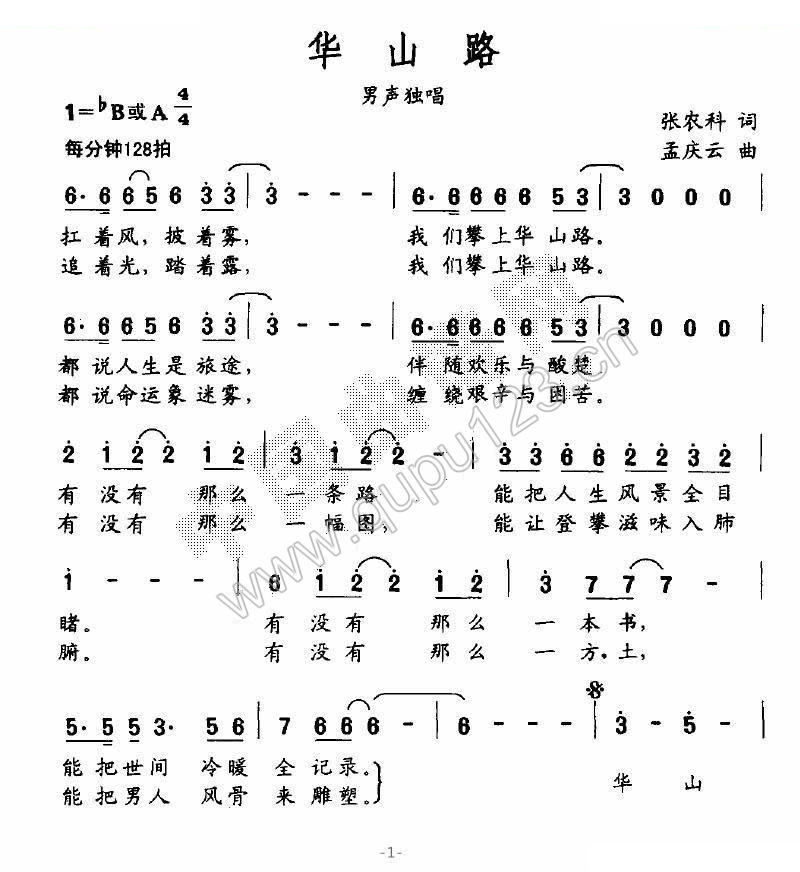 华山路
男声独唱
1=♭B或A 4/4
每分钟128拍
张农科 词
孟庆云 曲
6· 6 6 5 6 3 3 | 3 - - - | 6· 6 6 6 6 5 3 | 3 0 0 0 |
扛着风，披着雾， 我们攀上华山路。
追着光，踏着露， 我们攀上华山路。
6· 6 6 6 5 6 3 3 | 3 - - - | 6· 6 6 6 6 5 3 | 3 0 0 0 |
都说人生是旅途， 伴随欢乐与酸楚，
都说命运象迷雾， 缠绕艰辛与困苦。
2 1 2 2 1 2 | 3 1 2 2 - | 3 3 6 6 2 2 3 2 |
有没有那么一条路 能把人生风景全目
有没有那么一幅图， 能让登攀滋味入肺
1 - - - | 6 1 2 2 1 2 | 3 7 7 7 - |
睹。 有没有那么一本书，
腑。 有没有那么一方土，
5· 5 5 3· 5 6 | 7 6 6 6 - | 6 - - - | 3 - 5 - |
能把世间冷暖全记录。
能把男人风骨来雕塑。
华山
www.qupu123.cn
-1-